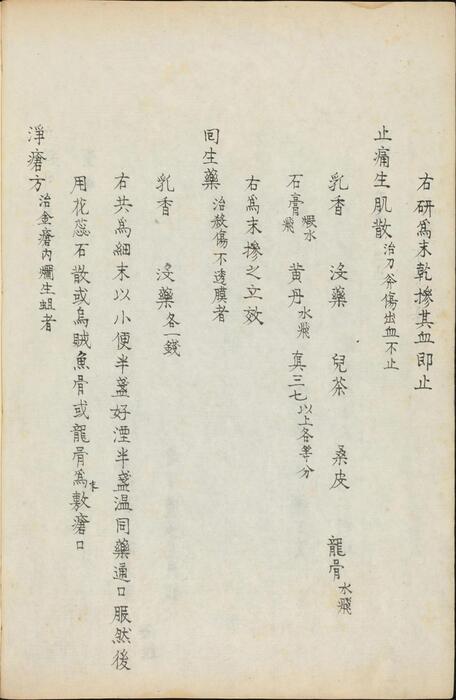 右研為末乾摻其血即止
止痛生肌散 治刀斧傷出血不止
乳香 沒藥 兒茶 桑皮 龍骨 水飛
石膏 煆水飛 黄丹 水飛 真三七 以上各等分
右為末摻之立效
囘生藥 治殺傷不透膜者
乳香 沒藥 各一錢
右共為細末以小便半盞好湮半盞温同藥通口服然後
用花蕊石散或烏賊魚骨或龍骨為末敷瘡口
淨瘡方 治金瘡內爛生蛆者